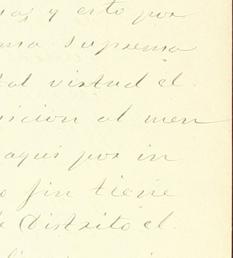 y esto por
suprema
tal virtud el
sicion al men
aqui por in
fin tiene
Distrito el